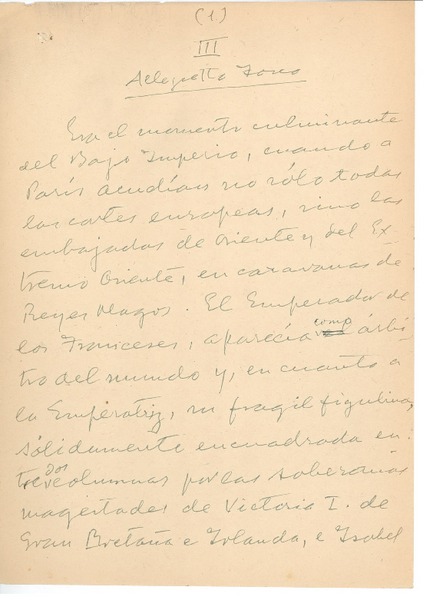 (1)
III
Allegretto Fosco
Era el momento culminante
del Bajo Imperio, cuando a
París acudían no sólo todas
las cortes europeas, sino las
embajadas de Oriente y del Ex-
tremo Oriente, en caravanas de
Reyes Magos. El Emperador de
los Franceses, aparecía como árbi-
tro del mundo y, en cuanto a
la Empératriz, su fragil figulina,
sólidamente encuadrada en-
tre dos columnas por las soberanas
magestades de Victoria I. de
Gran Bretaña e Irlanda, e Isabel